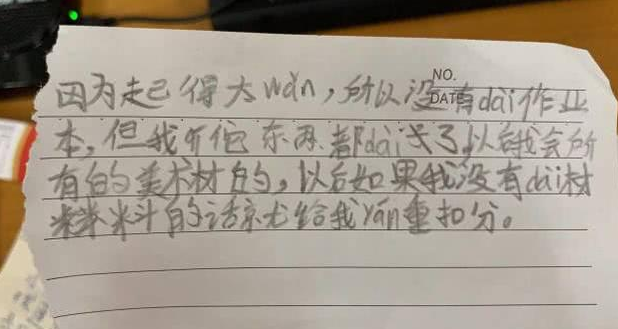 NO.
DATE
因为走已得大wǎn，所以没有dài作业
本，但我有他东西都dài来了以后我会所
有的美术材的，以后如果我没有dài材
料的话京尤给我yán重扣分。